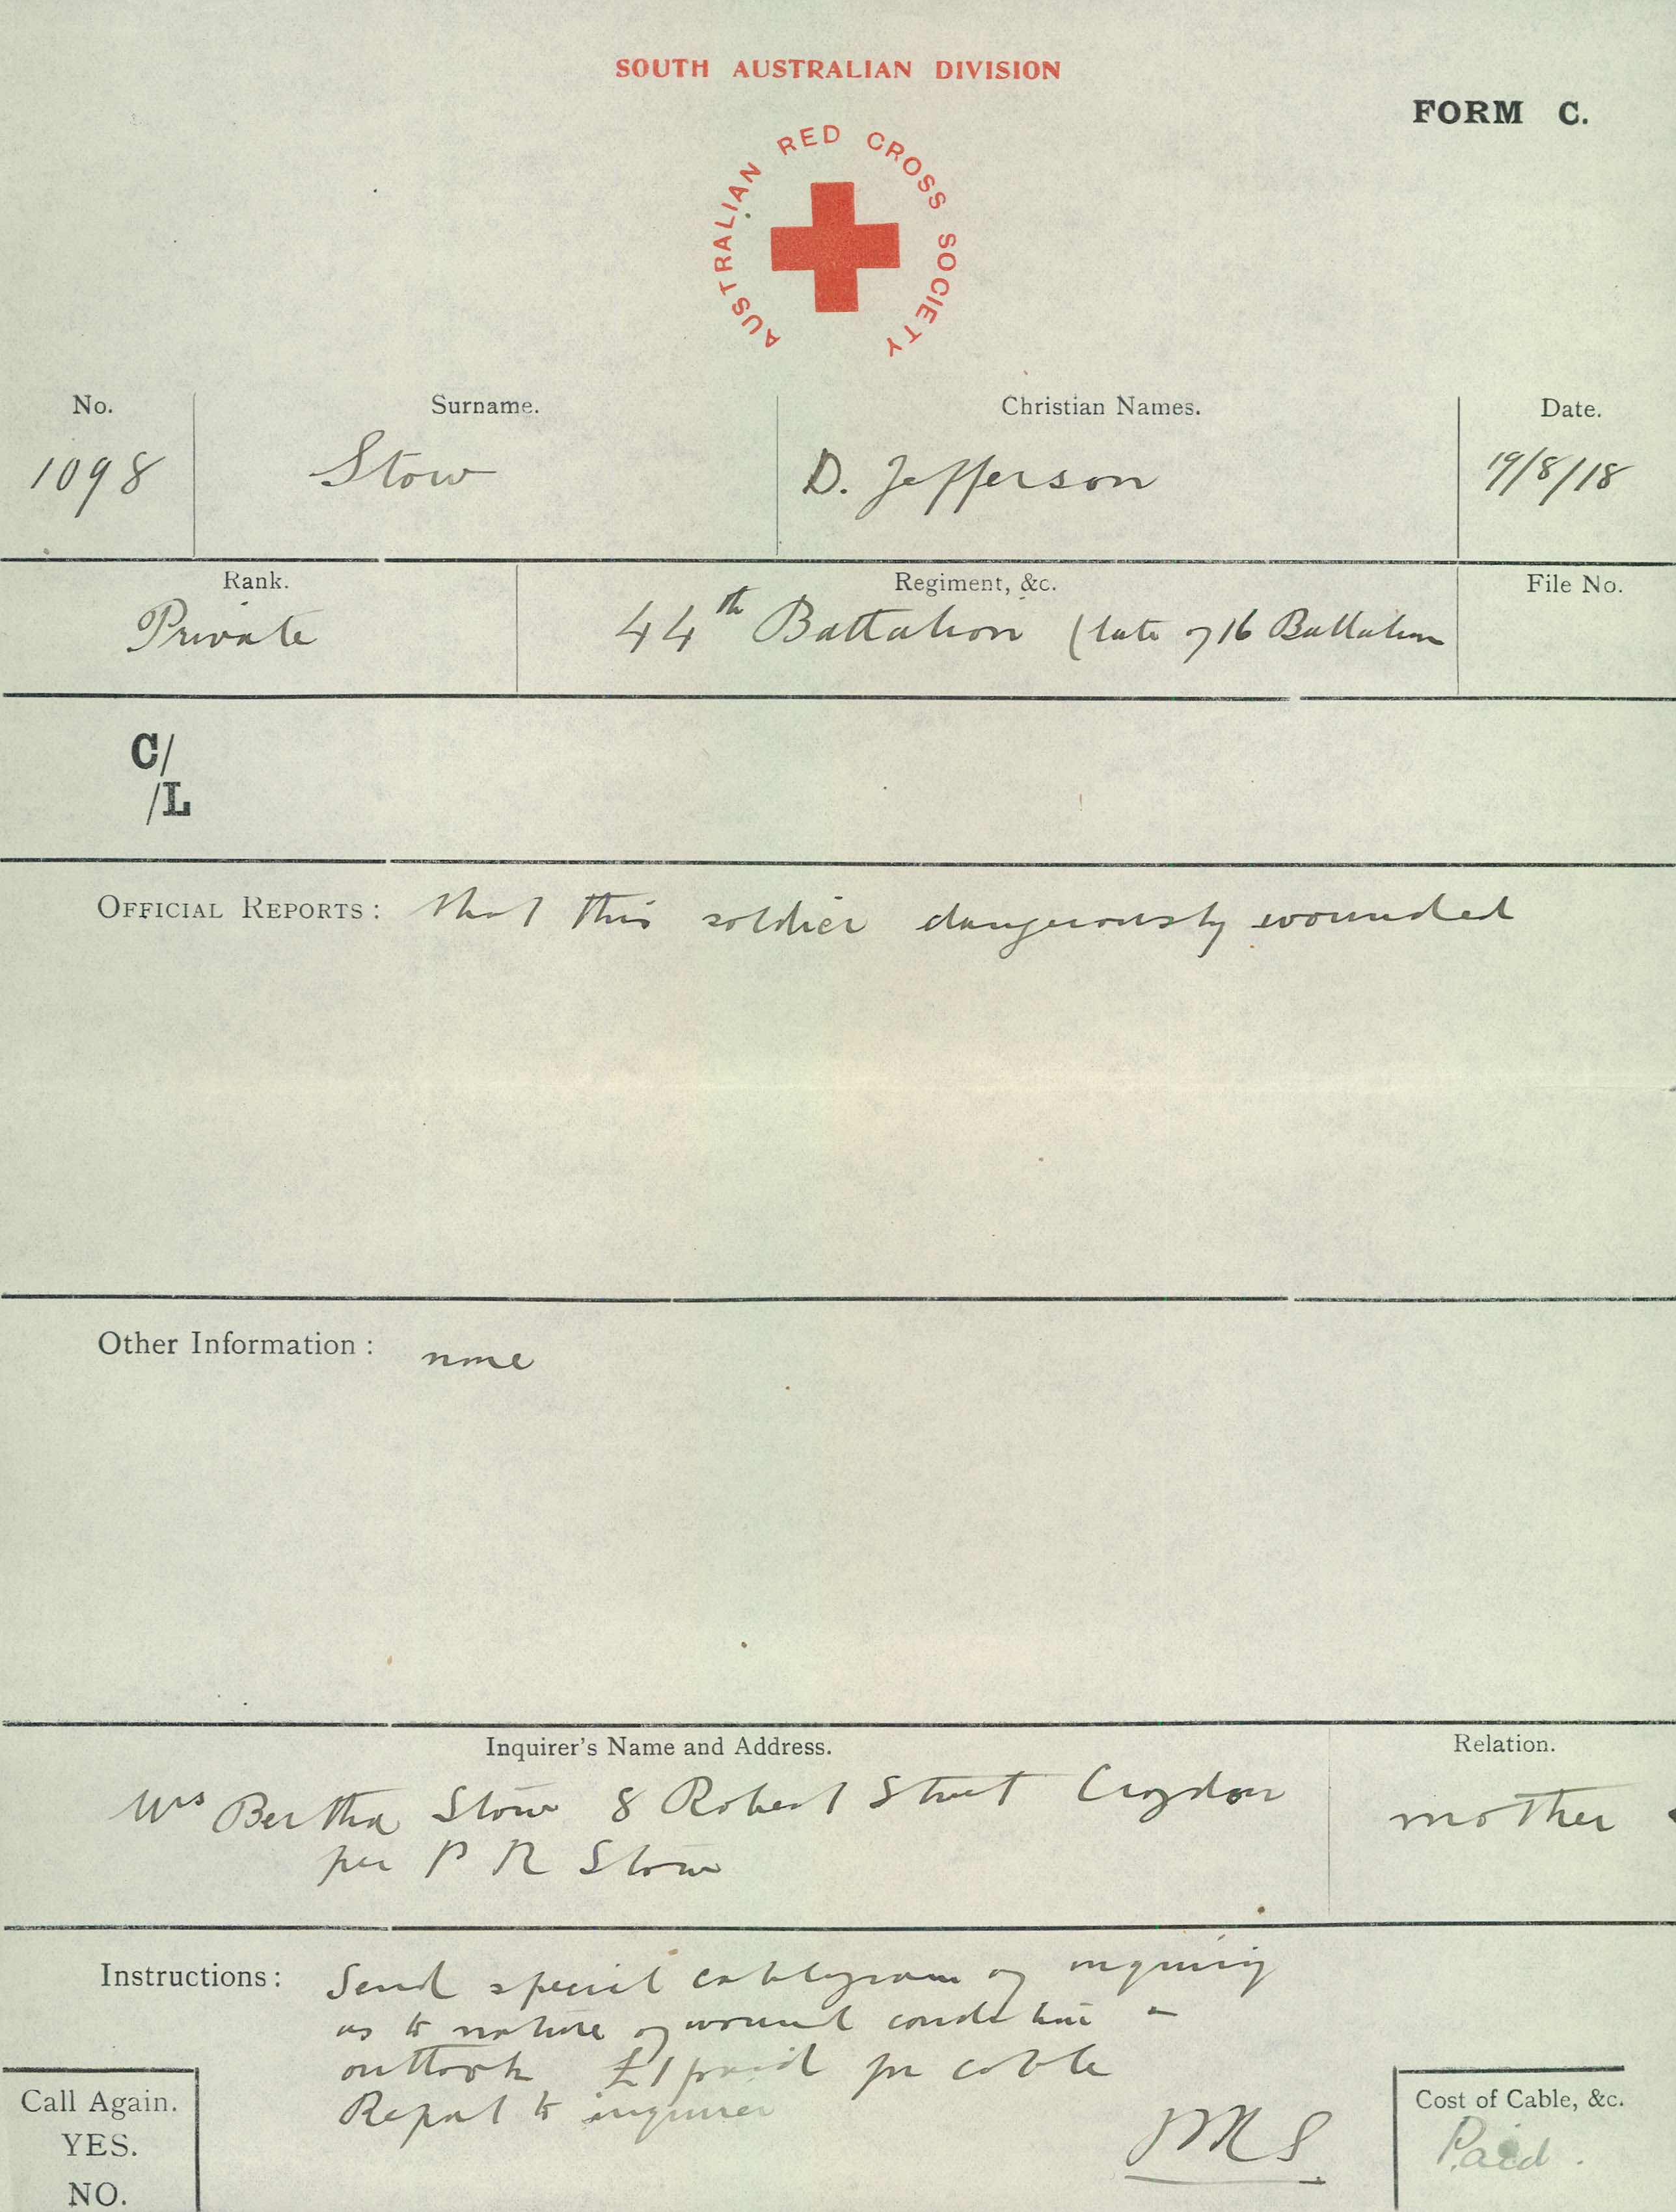 SOUTH AUSTRALIAN DIVISION
FORM C.
AUSTRALIAN RED CROSS SOCIETY
No. Surname. Christian Names. Date.
1098 Stow D. Jefferson 19/8/18
Rank. Regiment, &c. File No.
Private 44th Battalion (late of 16 Battalion
C/
/L
OFFICIAL REPORTS: that this soldier dangerously wounded
Other Information: none
Inquirer's Name and Address. Relation.
Mrs Bertha Stow 8 Robert Street Croydon mother
per P R Stow
Instructions: Send special cablegram of inquiry
as to nature of wound condition
outlook £1 paid for cable
Report to inquirer
Call Again.
YES.
NO.
Cost of Cable, &c.
Paid.